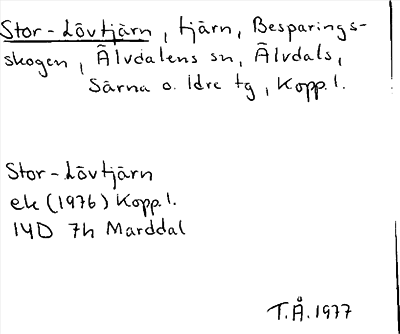 Stor-Lövtjärn, tjärn, Besparings-
skogen, Älvdalens sn, Älvdals,
Särna o. Idre tg, Kopp.l.
Stor-Lövtjärn
ek (1976) Kopp.l.
14D 7h Marddal
T.Å. 1977